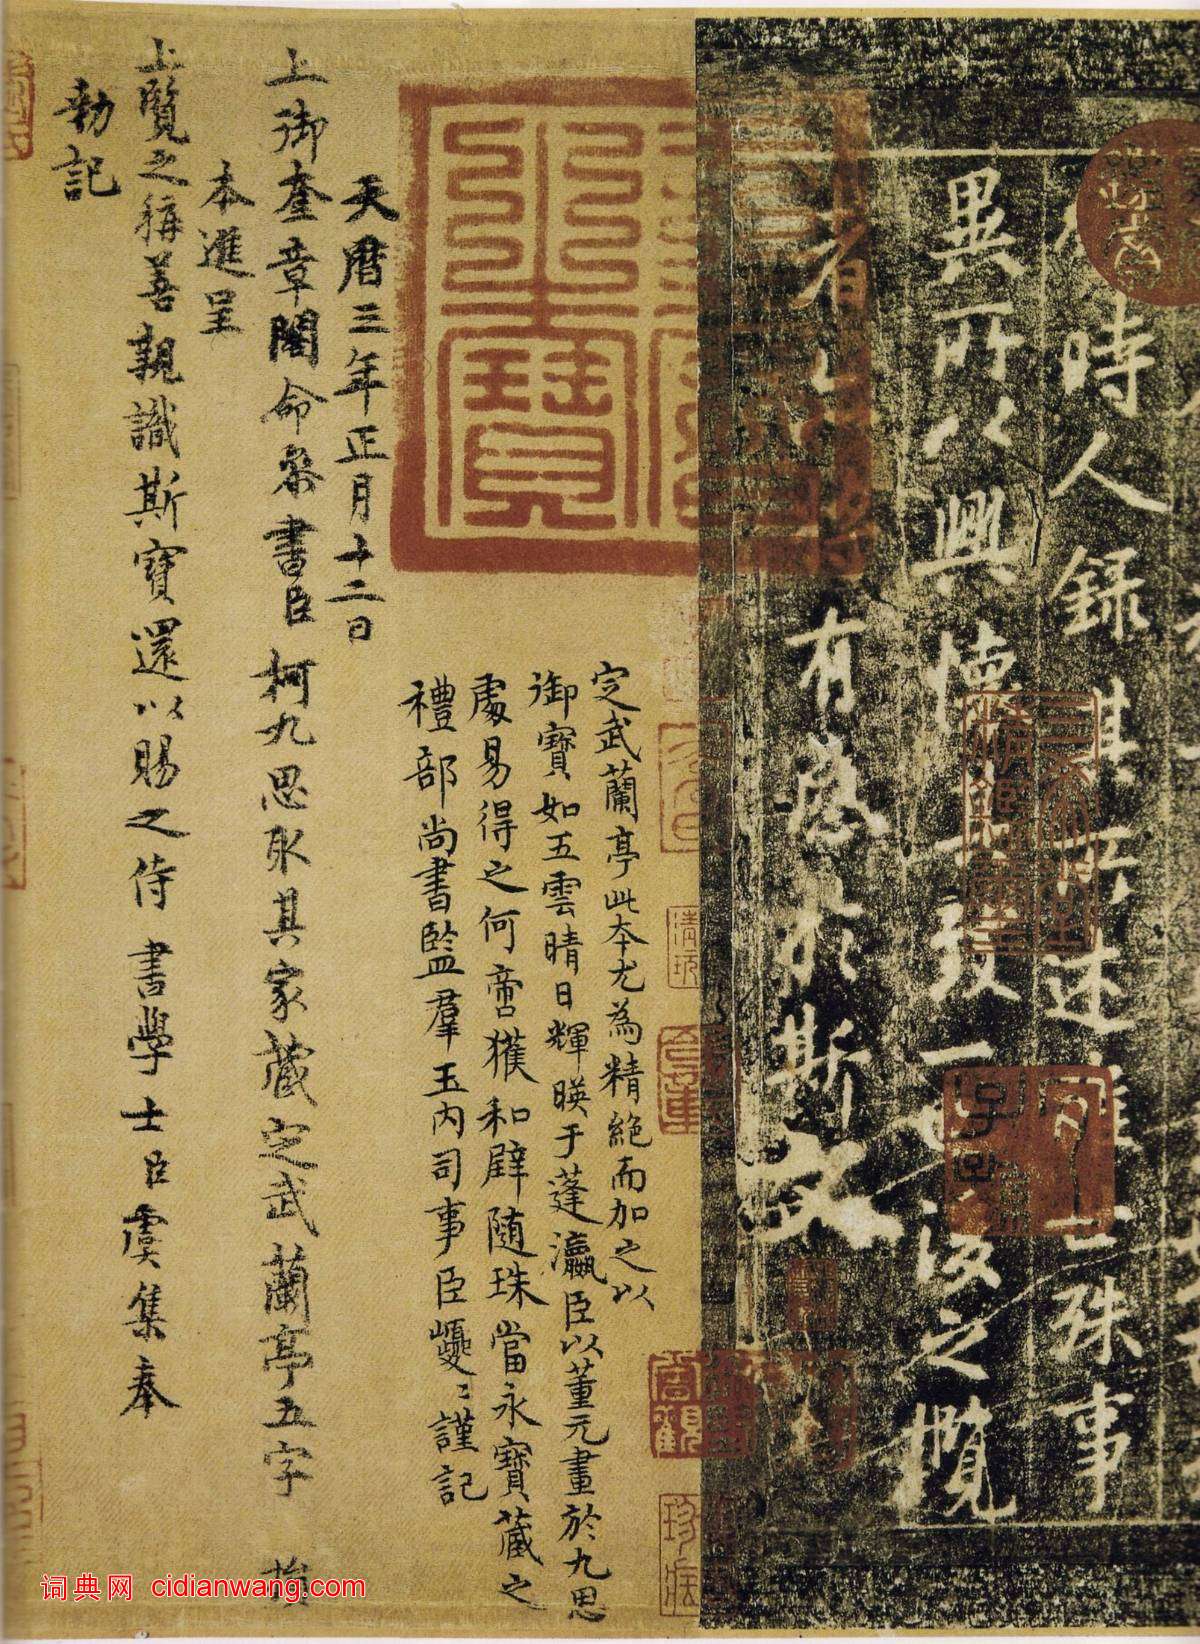 時人錄其所述雖世殊事
異所以興懷其致一也後之攬
者亦將有感於斯文
定武蘭亭此本尤為精絕而加之以
御寶如五雲晴日輝暎于蓬瀛臣以董元畫於九思
處易得之何啻獲和璧隨珠當永寶藏之
禮部尚書監羣玉內司事臣巙〻謹記
天曆三年正月十二日
上御奎章閣命參書臣柯九思取其家藏定武蘭亭五字損
本進呈
上覽之稱善親識斯寶還以賜之侍書學士臣虞集奉
勑記
词典网 cidianwang.com